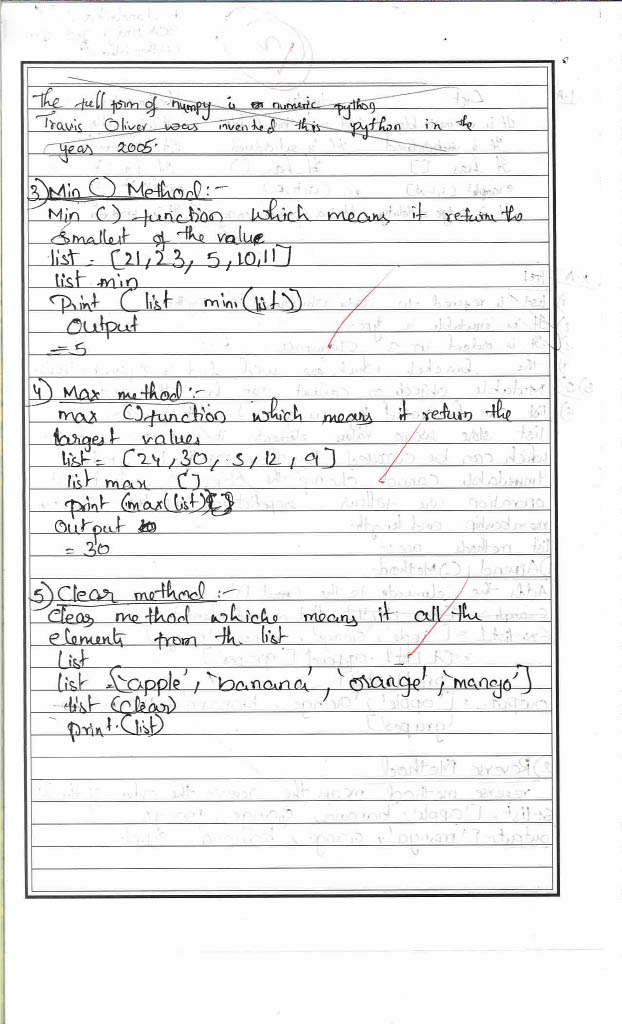 The full form of numpy is numeric python
Travis Oliver was invented this python in the
year 2005.
3) Min () Method:-
Min () function which means it return the
Smallest of the value
list = [21, 23, 5, 10, 11]
list min
Print (list mini (list))
Output
= 5
4) Max method:-
max () function which means it return the
largest values
list = [24, 30, 5, 12, 9]
list max []
print (max(list)[])
Output
= 30
5) Clear method :-
Clear method whiche means it all the
elements from th. list
List
list = ['apple', 'banana', 'orange', 'mango']
list (clear)
print.(list)